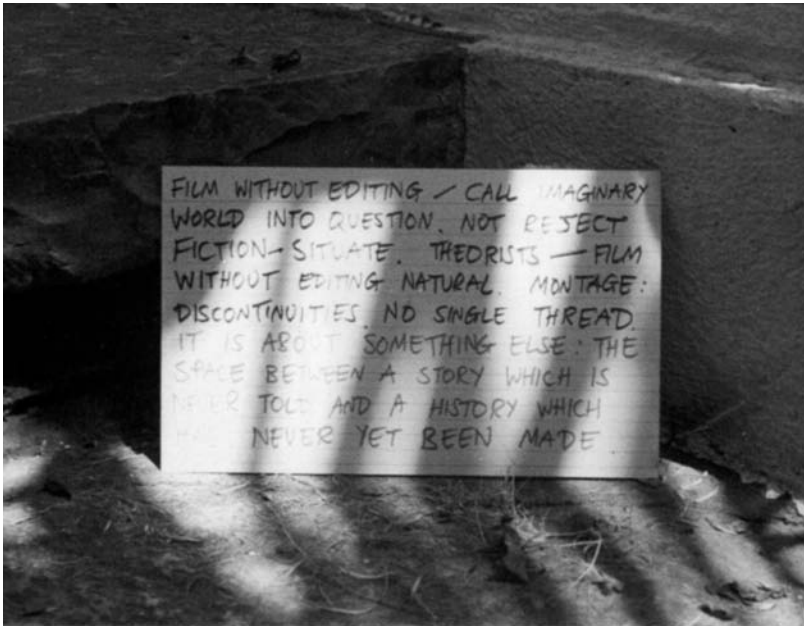 FILM WITHOUT EDITING / CALL IMAGINARY
WORLD INTO QUESTION. NOT REJECT
FICTION – SITUATE. THEORISTS — FILM
WITHOUT EDITING NATURAL. MONTAGE:
DISCONTINUITIES. NO SINGLE THREAD.
IT IS ABOUT SOMETHING ELSE: THE
SPACE BETWEEN A STORY WHICH IS
NEVER TOLD AND A HISTORY WHICH
HAS NEVER YET BEEN MADE